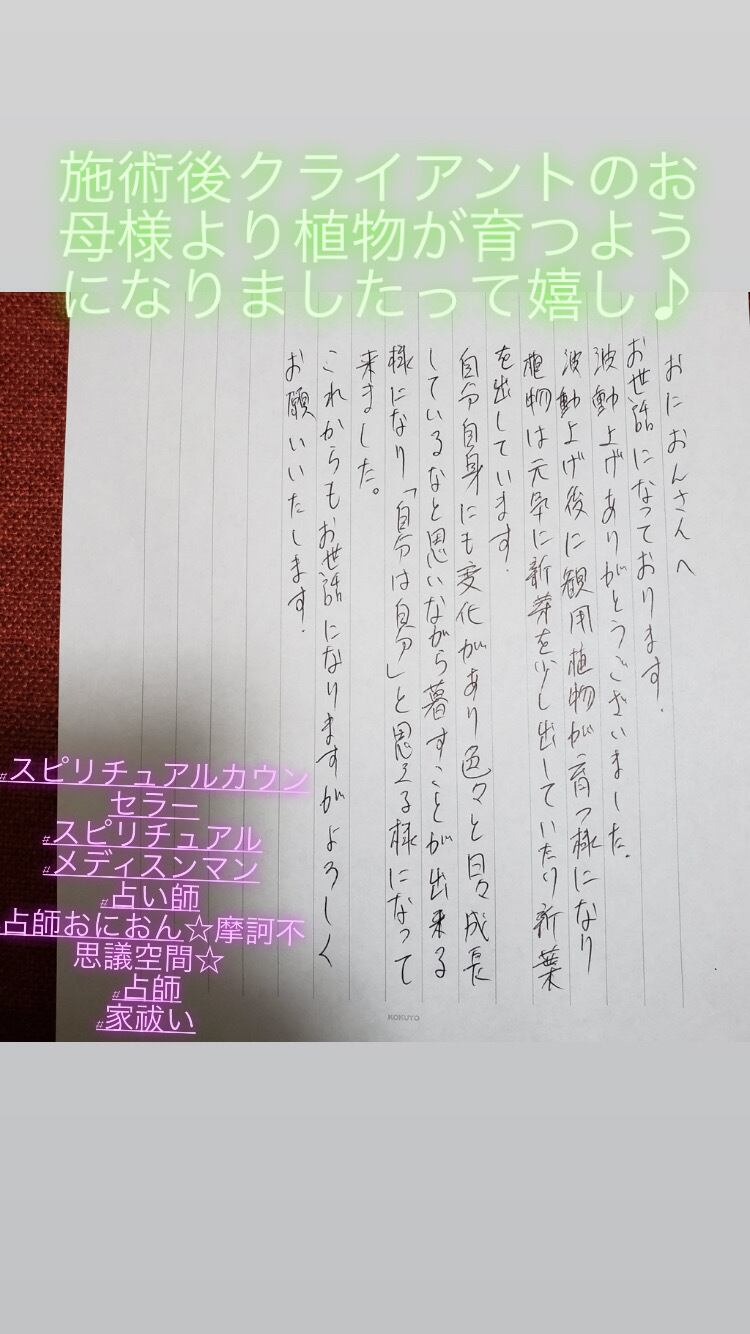 施術後クライアントのお
母様より植物が育つよう
になりましたって嬉し♪
おにおんさんへ
お世話になっております.
波動上げありがとうございました.
波動上げ後に観用植物が育つ様になり
植物は元気に新芽を少し出していたり新葉
を出しています.
自分自身にも変化があり色々と日々成長
しているなと思いながら暮すことが出来る
様になり「自分は自分」と思える様になって
来ました。
これからもお世話になりますがよろしく
お願いいたします.
#スピリチュアルカウン
セラー
#スピリチュアル
#メディスンマン
#占い師
占師おにおん☆摩訶不
思議空間☆
#占師
#家祓い
KOKUYO